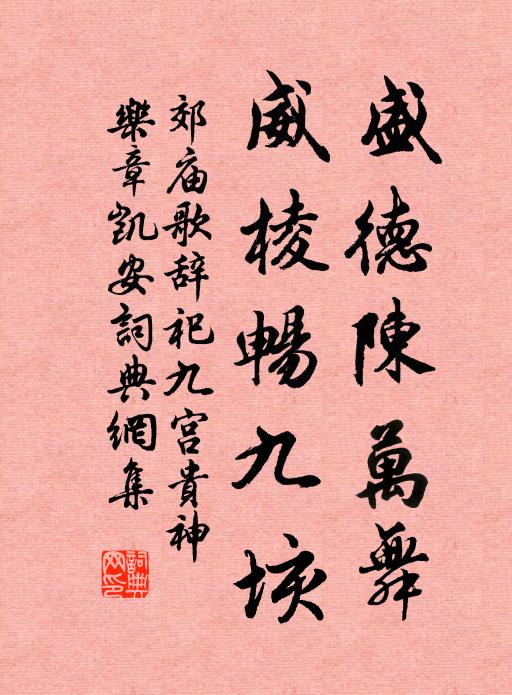 盛德陳萬舞
威棱暢九垓
郊庙歌辞祀九宫貴神
樂章凱安詞典網集
詞典网印